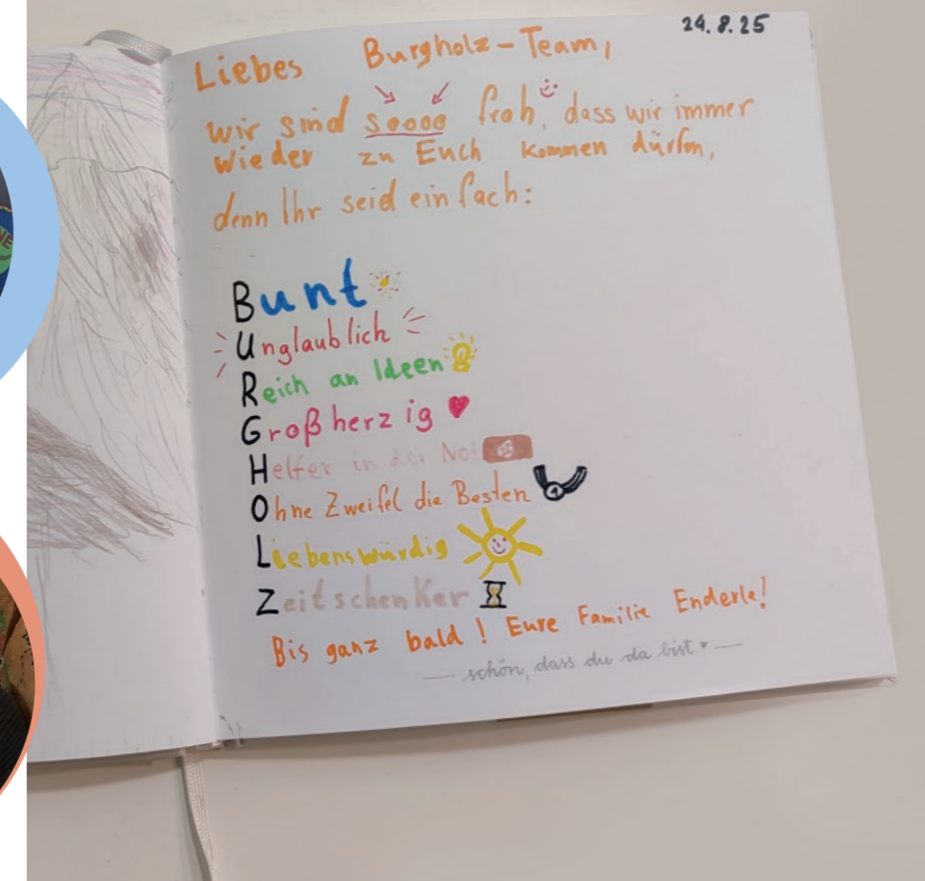 24.8.25
Liebes Burgholz-Team,
wir sind soooo froh, dass wir immer
wieder zu Euch kommen dürfen,
denn Ihr seid einfach:
Bunt
Unglaublich
Reich an Ideen
Großherzig
Helfer in der Not
Ohne Zweifel die Besten
Liebenswürdig
Zeitschenker
Bis ganz bald! Eure Familie Enderle!
— schön, dass du da bist ♥ —